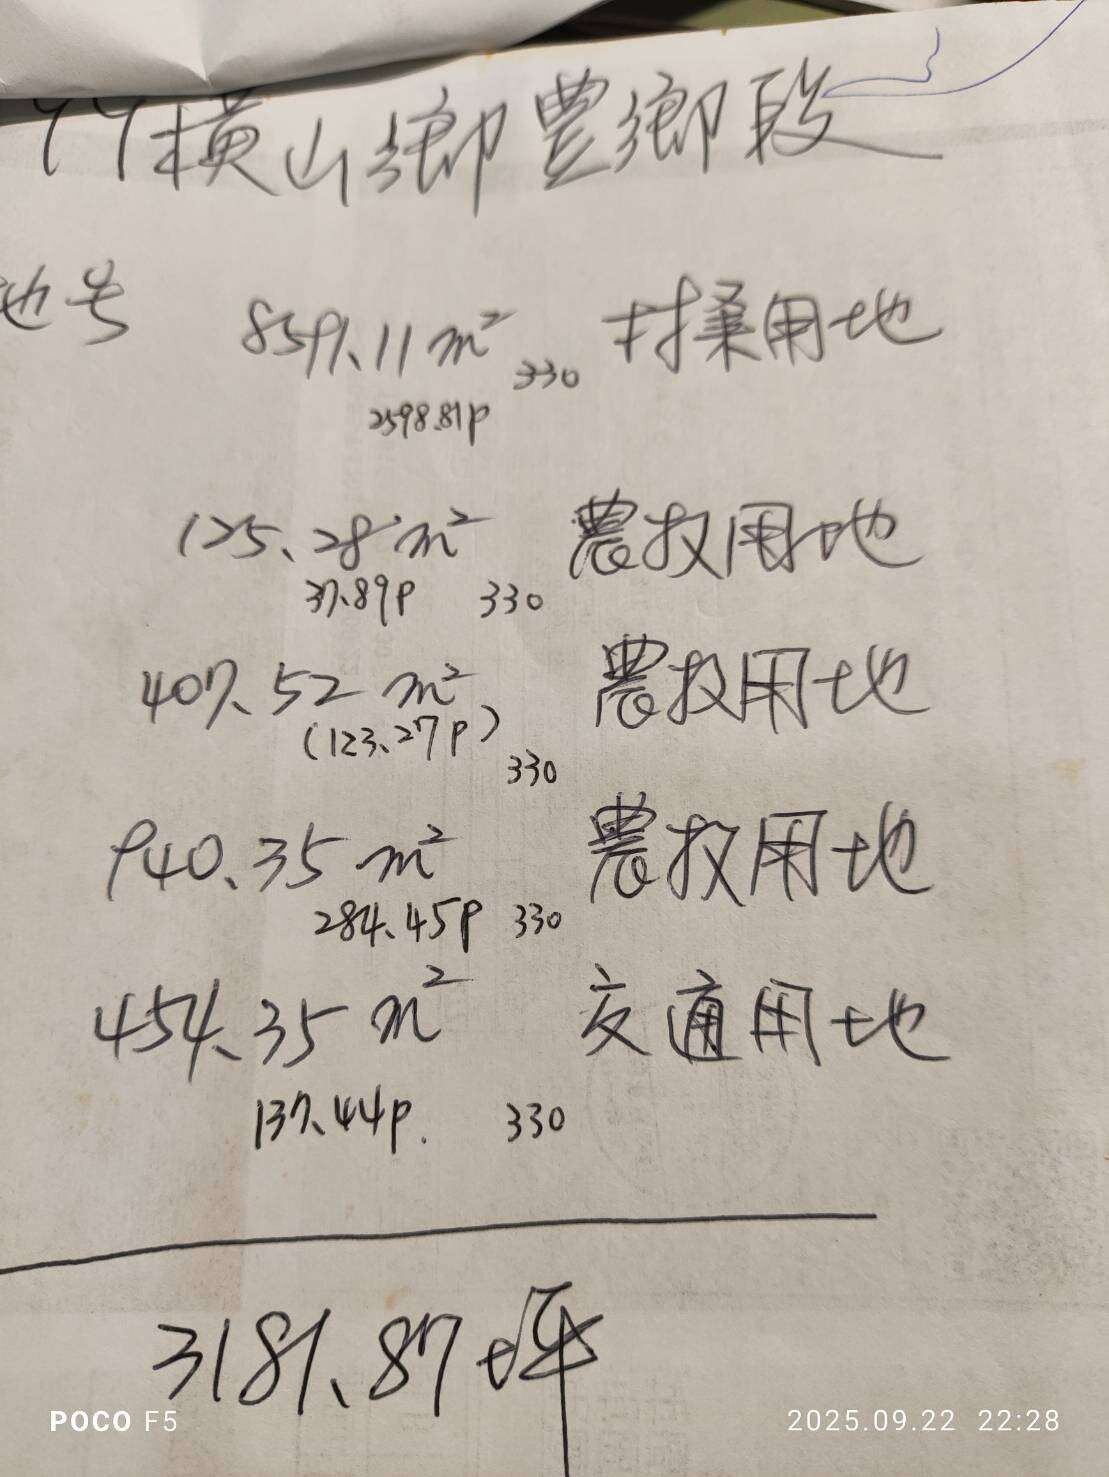 橫山鄉豐鄉段
地号
8591.11 m² 330 林業用地
2598.81p
125.28 m² 農牧用地
37.89p 330
407.52 m² 農牧用地
(123.27p) 330
940.35 m² 農牧用地
284.45p 330
454.35 m² 交通用地
137.44p. 330
3181.87坪
POCO F5
2025.09.22 22:28